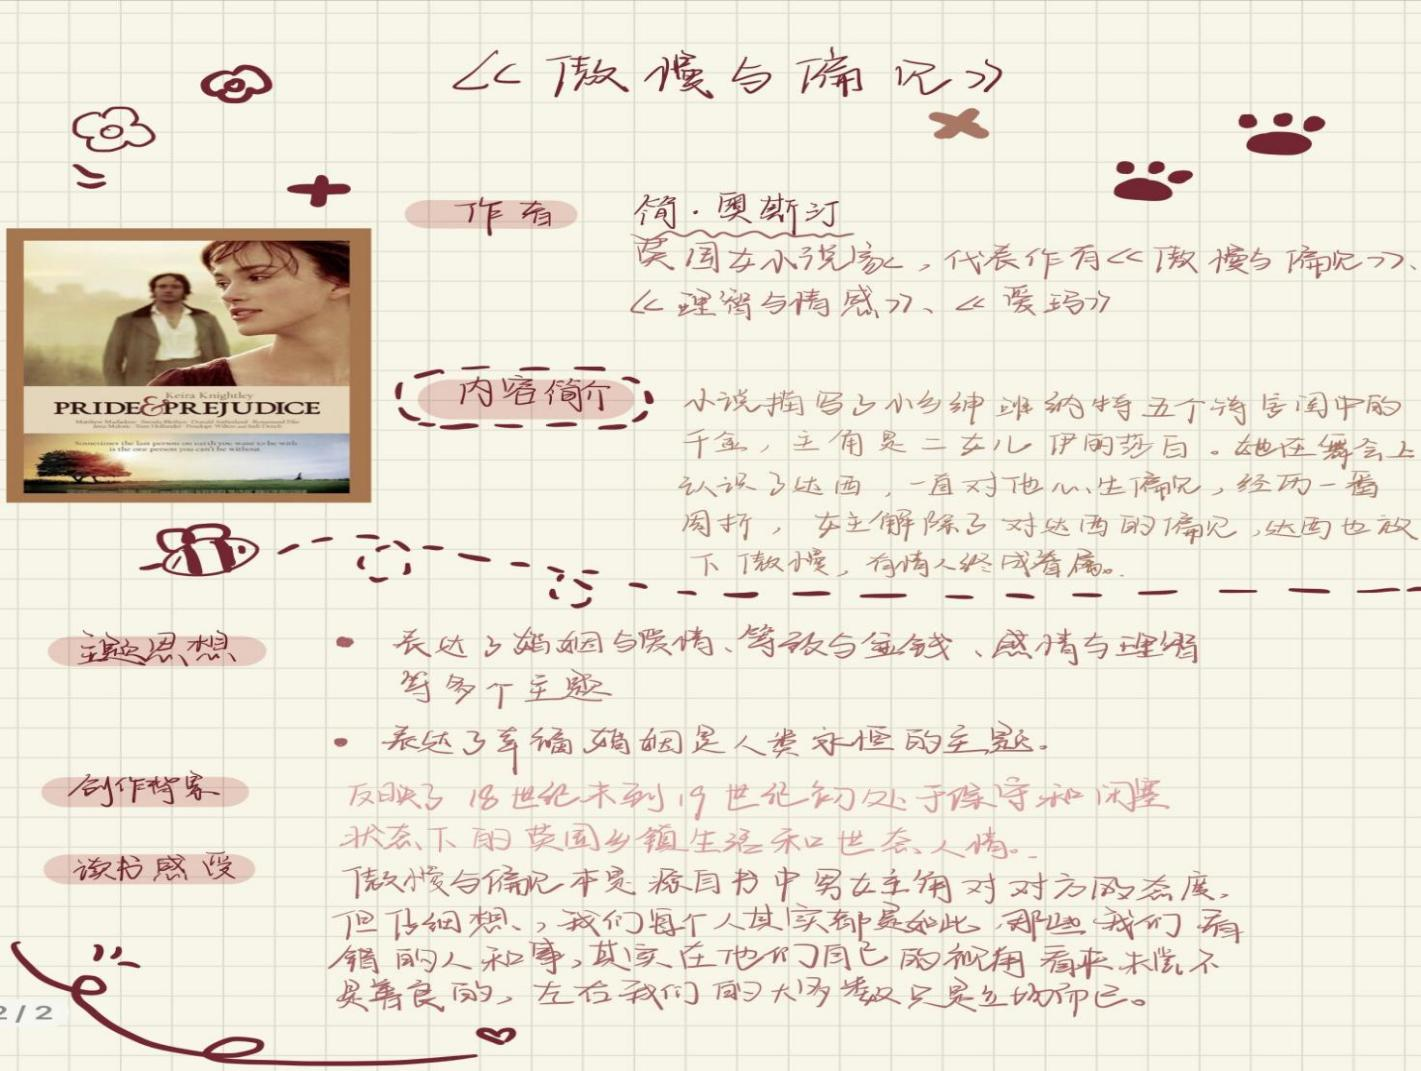 《傲慢与偏见》
作者
简·奥斯汀
英国女小说家，代表作有《傲慢与偏见》、
《理智与情感》、《爱玛》
Keira Knightley
PRIDE & PREJUDICE
Sometimes the last person on earth you want to be with
is the one person you can't be without.
内容简介
小说描写了小乡绅班纳特五个待字闺中的
千金，主角是二女儿伊丽莎白。她在舞会上
认识了达西，一直对他心生偏见，经历一番
周折，女主解除了对达西的偏见，达西也放
下傲慢，有情人终成眷属。
主题思想
• 表达了婚姻与爱情、等级与金钱、感情与理智
等多个主题
• 表达了幸福婚姻是人类永恒的主题。
创作背景
反映了18世纪末到19世纪初处于保守和闭塞
状态下的英国乡镇生活和世态人情。
读书感受
傲慢与偏见本是源自书中男女主角对对方的态度，
但仔细想，我们每个人其实都是如此，那些我们看
错的人和事，其实在他们自己的视角看来未尝不
是善良的，左右我们的大多数只是立场而已。
2/2